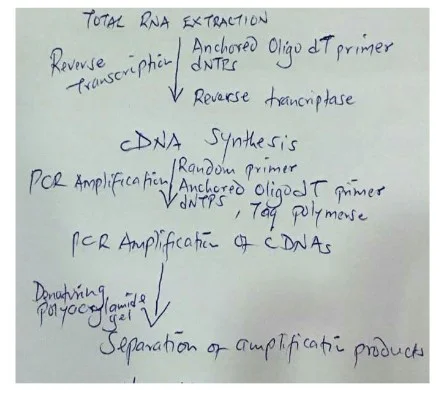 TOTAL RNA EXTRACTION
Reverse transcription
Anchored Oligo dT primer
dNTPs
Reverse trancriptase
cDNA Synthesis
PCR Amplification
Random primer
Anchored oligodT primer
dNTPS, Taq polymerse
PCR Amplification of cDNAs
Denaturing
polyacrylamide
gel
Separation of amplificatin products